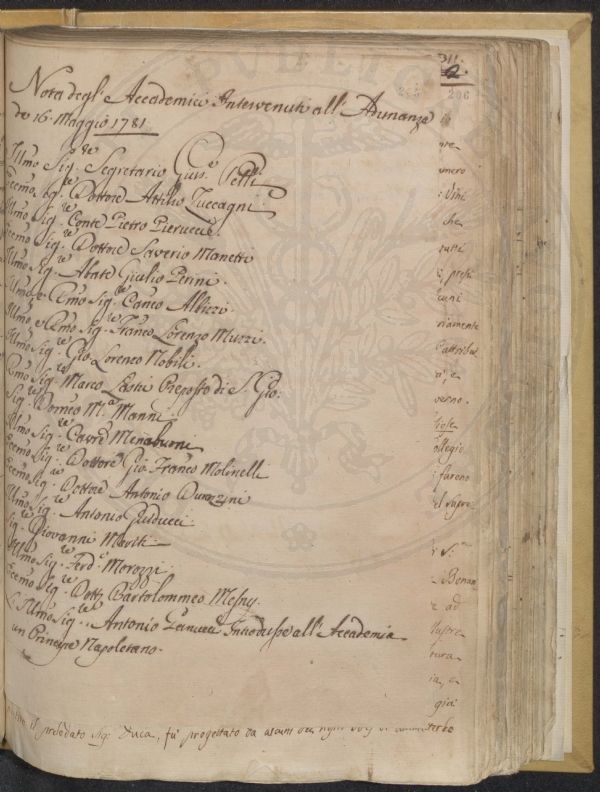 Nota degl' Accademici Intervenuti all' Adunanza
de 16. Maggio 1781.
Illmo Sig.re Segretario Gius.e Pelli
Eccemo Sig.re Dottore Attilio Zuccagni
Illmo Sig.re Conte Pietro Pierucci
Eccemo Sig.re Dottore Saverio Manetti
Illmo Sig.re Abate Giulio Perini
Illmo e Rmo Sig.re Canco Albizzi
Illmo e Rmo Sig.re Franco Lorenzo Muzzi
Illmo Sig.re Gio Lorenzo Nobili
Rmo Sig.re Marco Lastri Proposto di S. Gio:
Sig.re Domco M.a Manni
Illmo Sig.re Cavre
Eccemo Sig.re Dottore Gio. Franco Molinelli
Eccemo Sig.re Dottore Antonio Durazzini
Illmo Sig.re Antonio
Sig.re Giovanni Mariti
Illmo Sig.re Ferd.o Morozzi
Eccemo Sig.re Dott. Bartolommeo Mesny
L' Illmo Sig.re Antonio Introdusse all' Accademia
un Principe Napoletano
il predodato Sig.r Duca, fu progettato da alcuni
206
numero
che
tutti
riamente
verno
ollegio
furono
el supre
Bonar
e ad
già